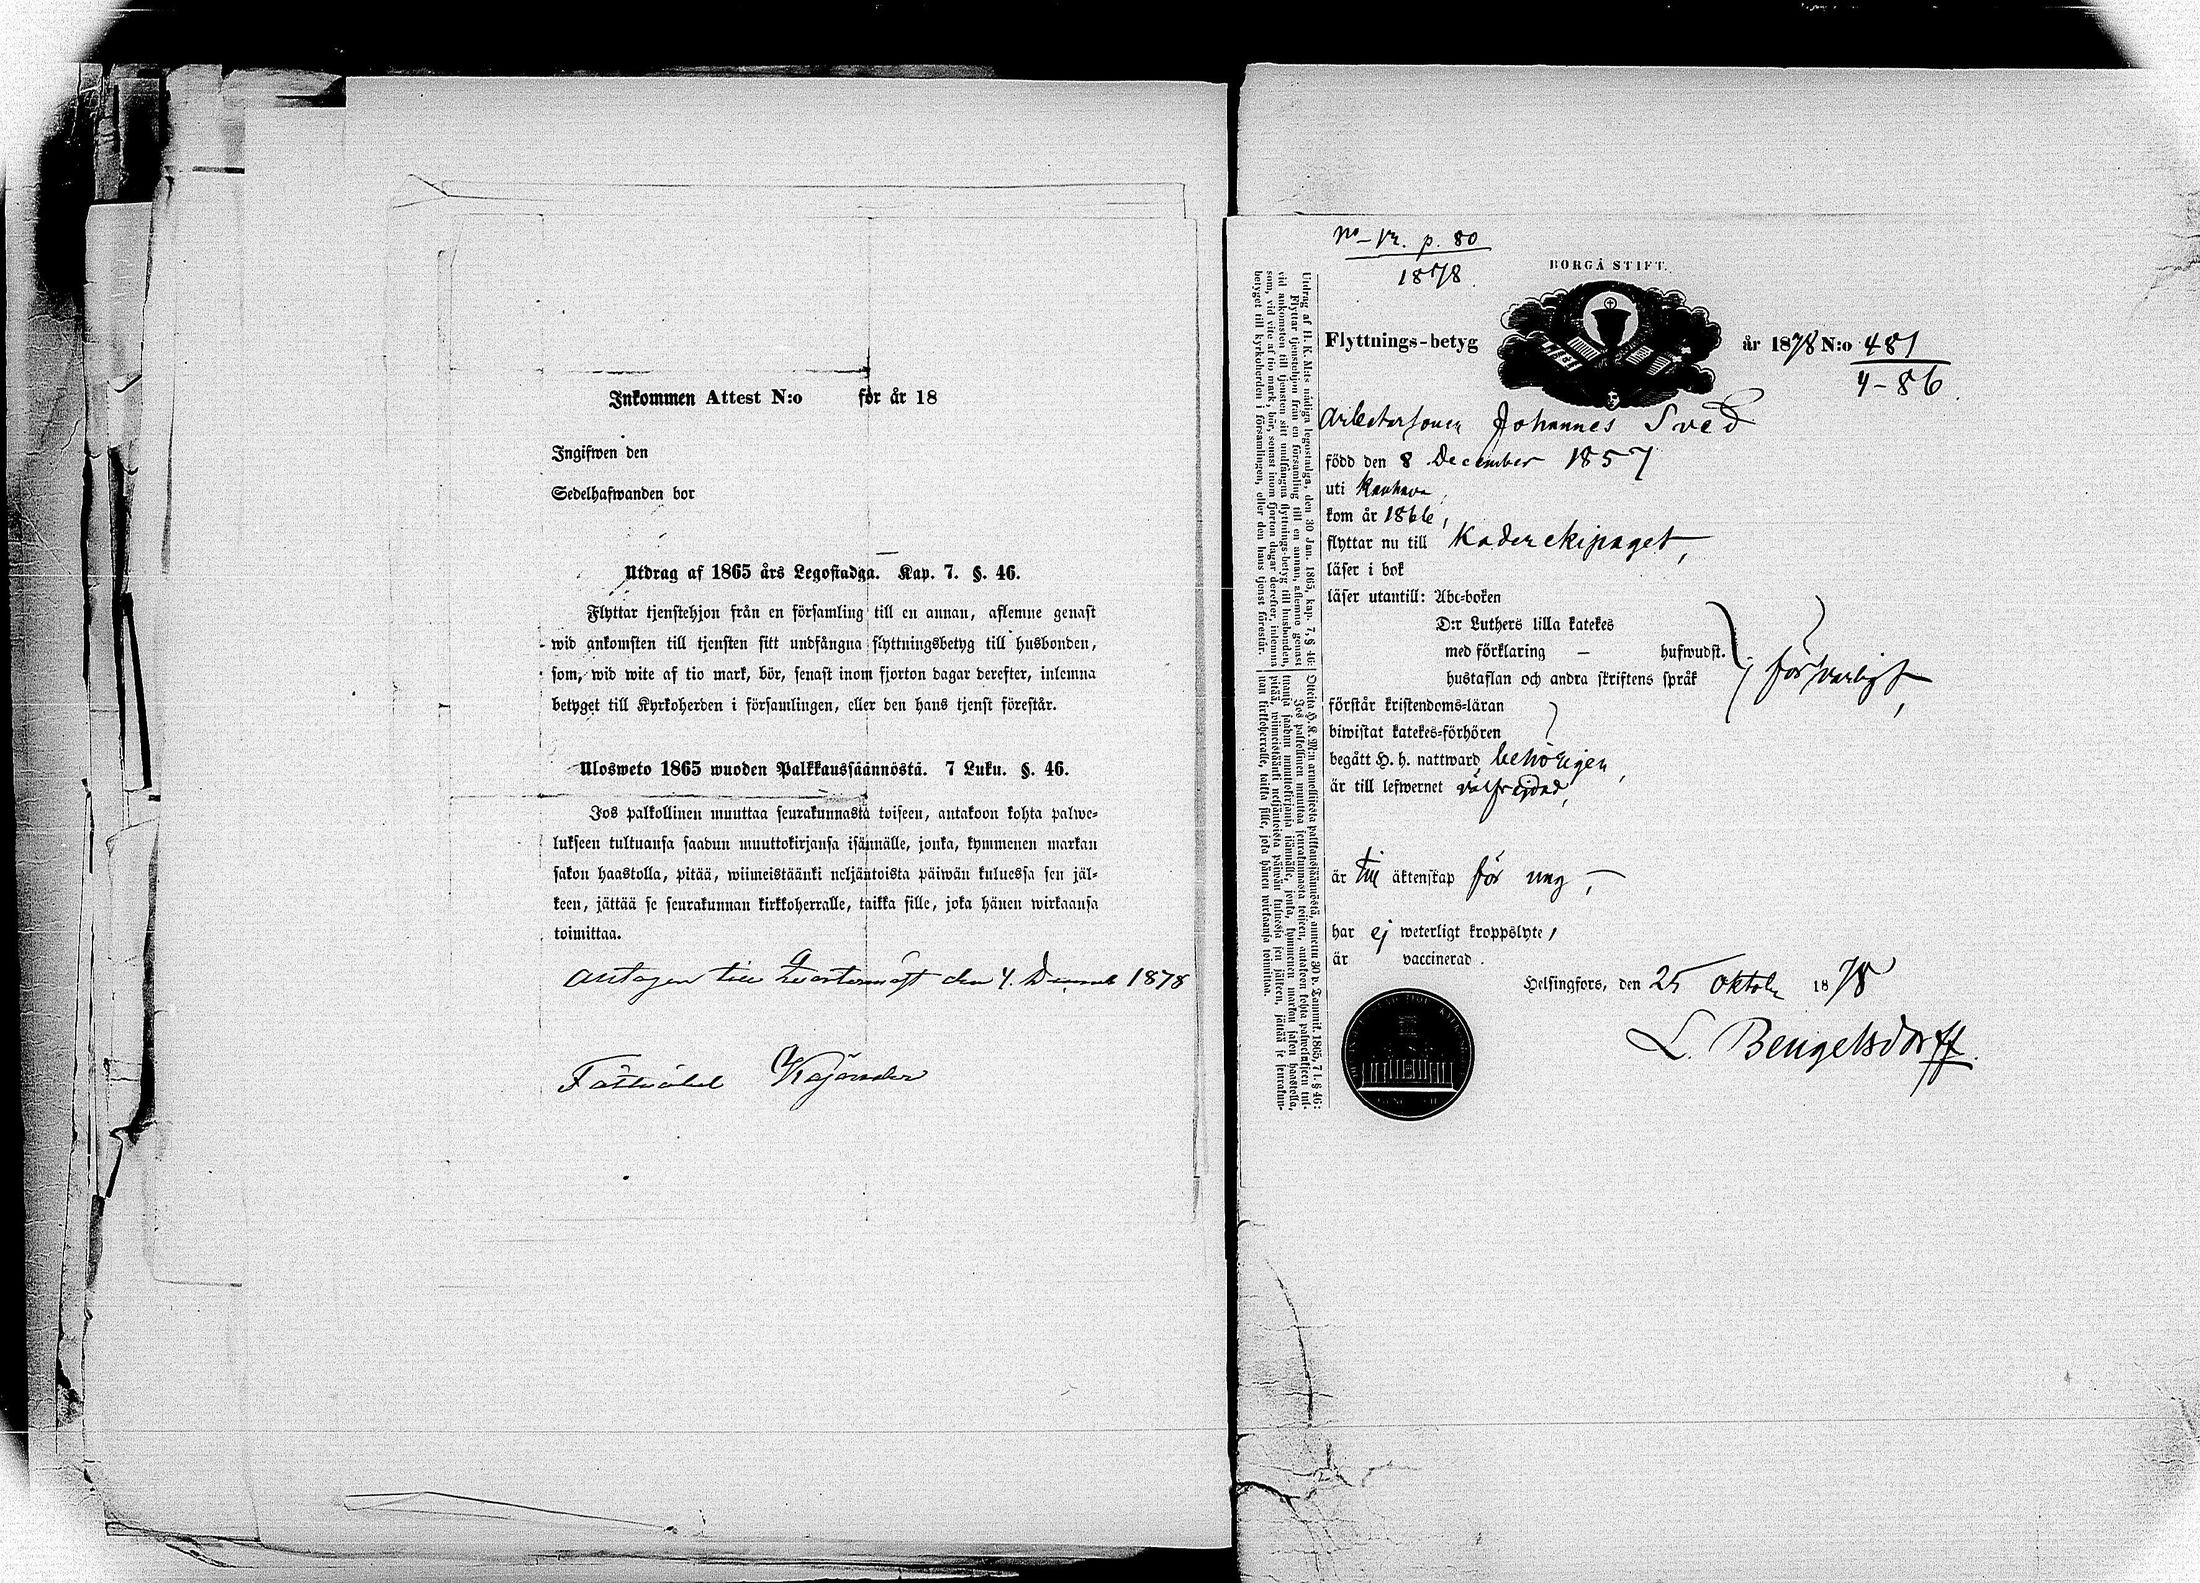 Inkommen Attest N:o för år 18
Ingifwen den
Sedelhafwanden bor
Utdrag af 1865 års Legostadga. Kap. 7. §. 46.
Flyttar tjenstehjon från en församling till en annan, aflemne genast
wid ankomsten till tjensten sitt undfångna flyttningsbetyg till husbonden,
som, wid wite af tio mark, bör, senast inom fjorton dagar derefter, inlemna
betyget till Kyrkoherden i församlingen, eller den hans tjenst förestår.
Ulosweto 1865 wuoden Palkkaussäännöstä. 7 Luku. §. 46.
Jos palkollinen muuttaa seurakunnasta toiseen, antakoon kohta palwe-
lukseen tultuansa saadun muuttokirjansa isännälle, jonka, kymmenen markan
sakon haastolla, pitää, wiimeistäänki neljäntoista päiwän kuluessa sen jäl-
keen, jättää se seurakunnan kirkkoherralle, taikka sille, joka hänen wirkaansa
toimittaa.
antagen till den 4. 1878
No - 12. p. 80
1878
BORGÅ STIFT.
Flyttnings-betyg år 1878 N:o 481
4-86
Arbetarsonen Johannes Sved
född den 8 December 1857
uti Kauhava,
kom år 1866,
flyttar nu till Kaderekipaget,
läser i bok
läser utantill: Abc-boken
D:r Luthers lilla katekes
med förklaring — hufwudst.
hustaflan och andra skriftens språk
försvarligt,
förstår kristendoms-läran
biwistat katekes-förhören
begått H. h. nattward behörigen,
är till lefwernet välfrejdad,
är till äktenskap för ung,
har ej weterligt kroppslyte,
är vaccinerad.
Helsingfors, den 25 Oktob 1878
L. Bengelsdorff.
Utdrag af H. K. M:ts nådiga legostadga, den 30 Jan. 1865, kap. 7, § 46:
Flyttar tjenstehjon från en församling till en annan, aflemne genast
vid ankomsten till tjensten sitt undfångna flyttnings-betyg till husbonden,
som, vid vite af tio mark, bör, senast inom fjorton dagar derefter, inlemna
betyget till kyrkoherden i församlingen, eller den hans tjenst förestår.